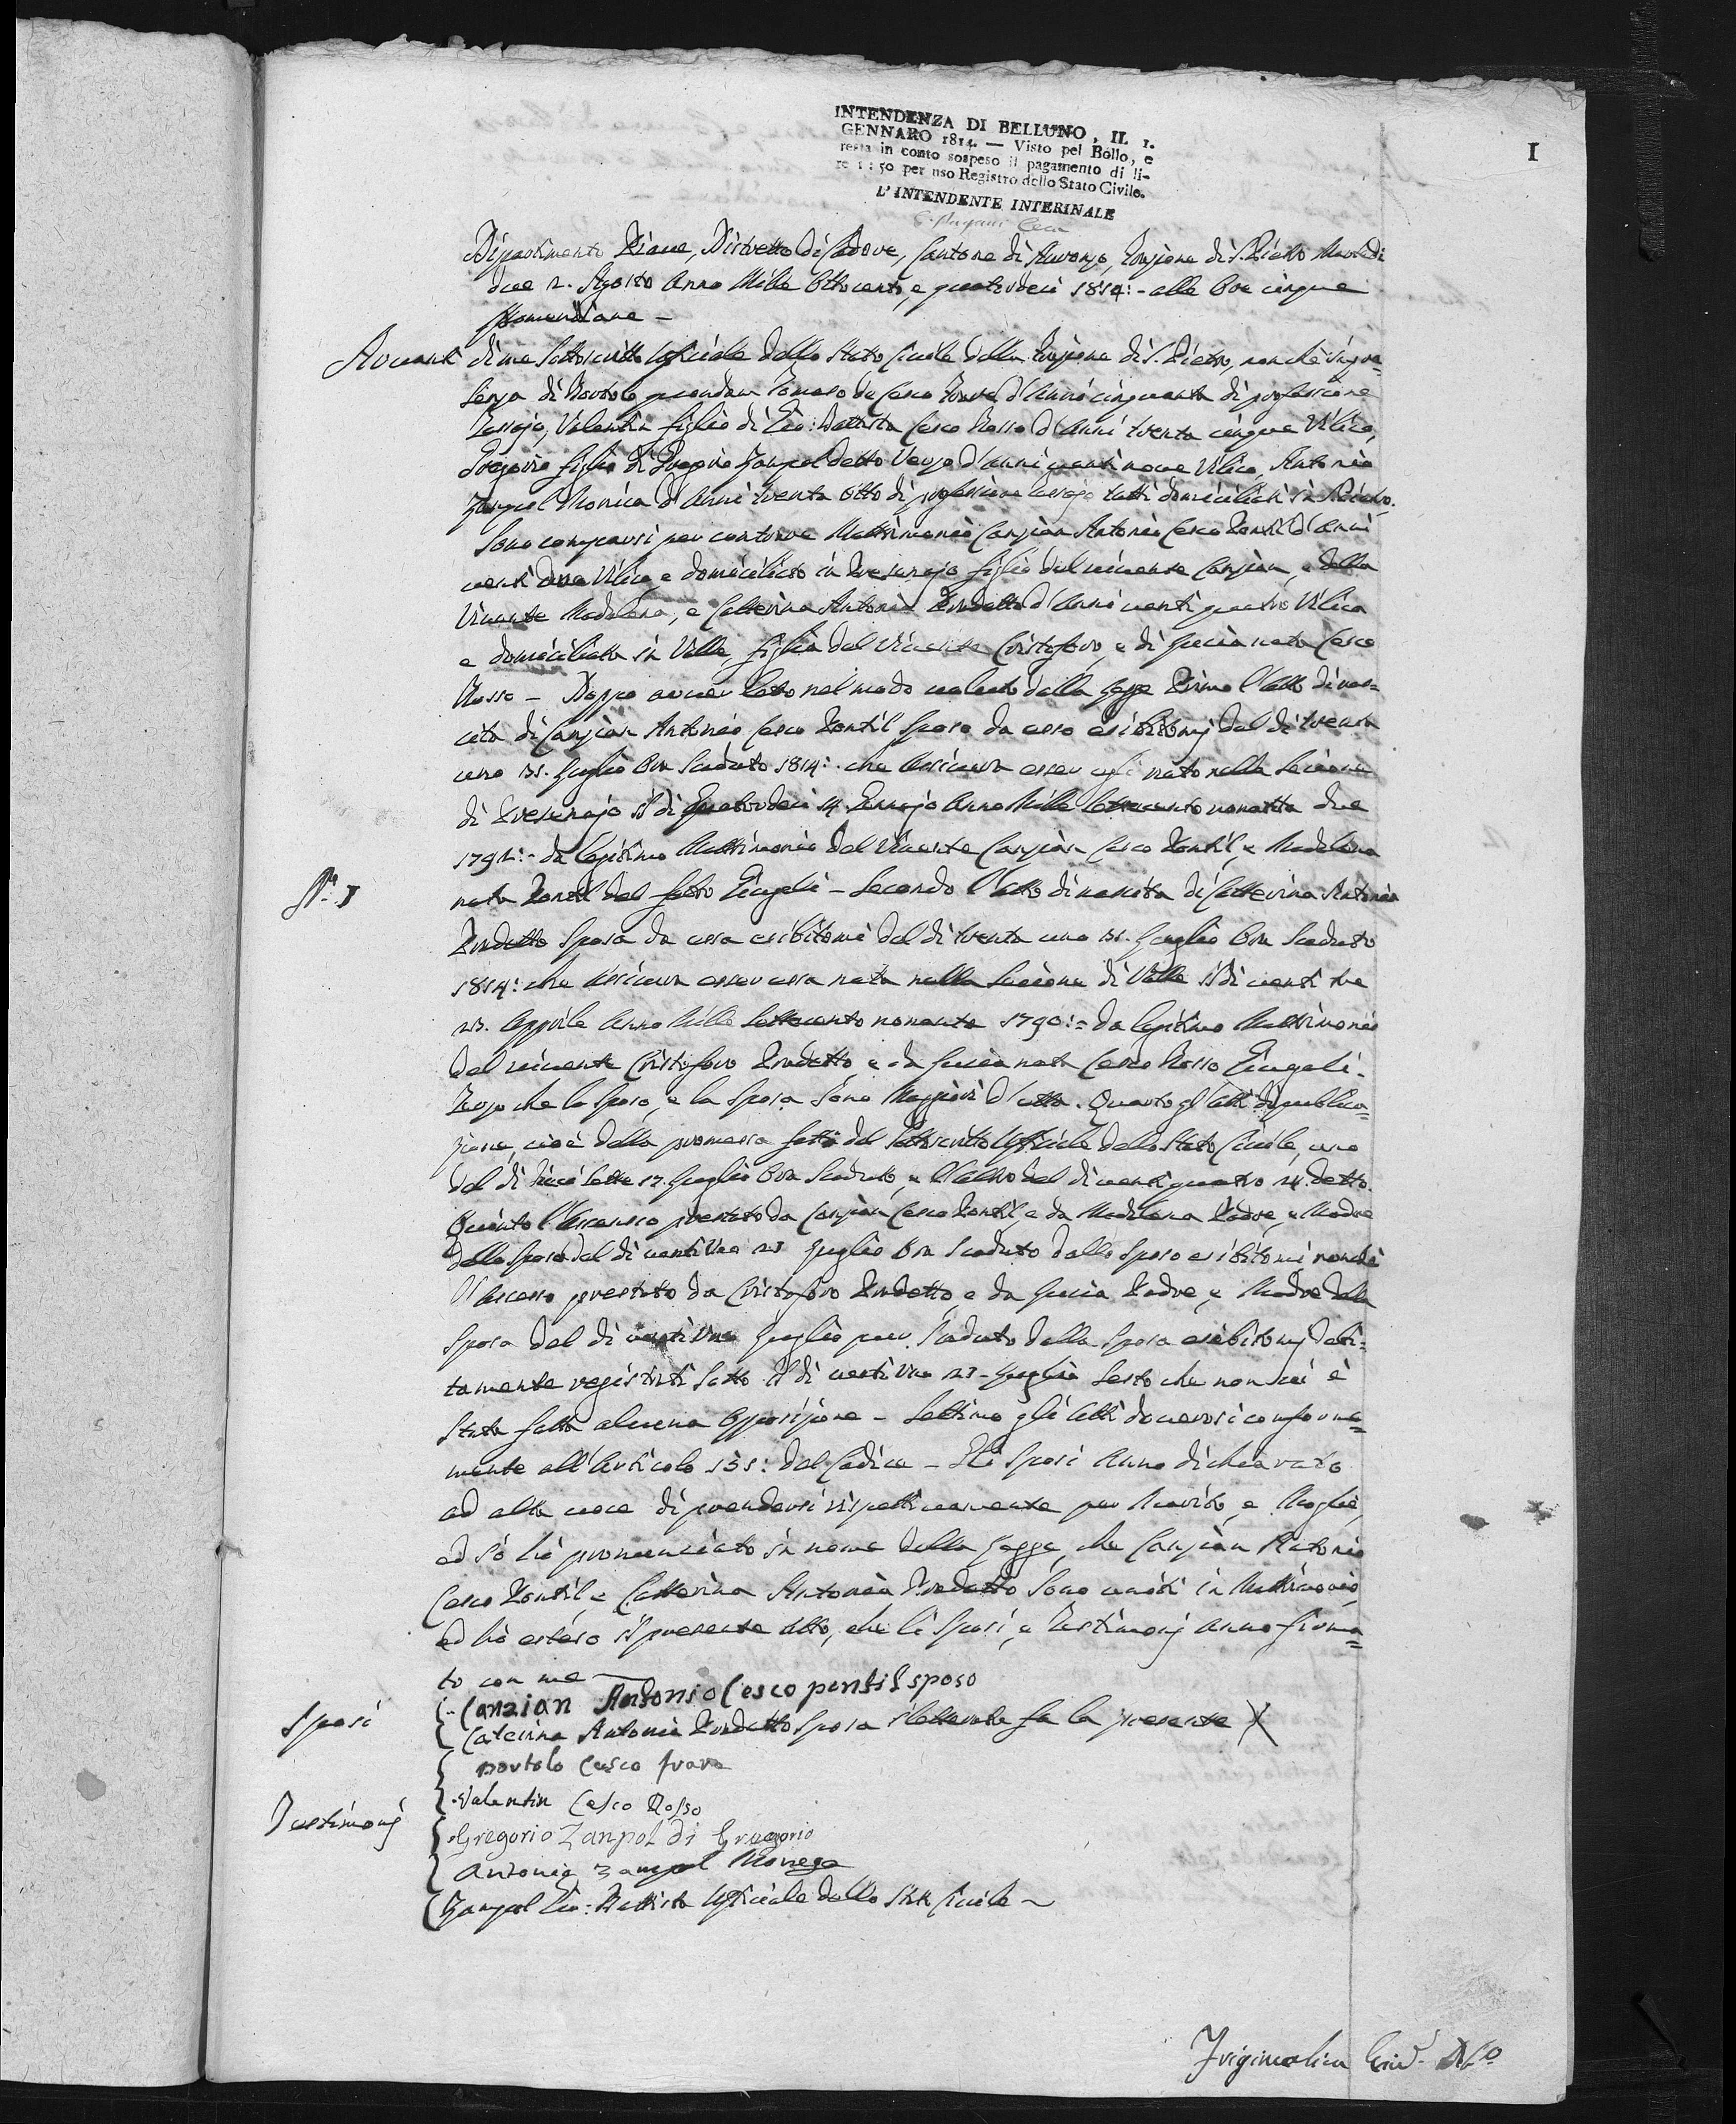 I
INTENDENZA DI BELLUNO, IL 1.
GENNARO 1814. — Visto pel Bollo, e
resta in conto sospeso il pagamento di li-
re 1:50 per uso Registro dello Stato Civile.
L'INTENDENTE INTERINALE
Dipartimento Piave, Distretto di Cadore, Cantone di Auronzo, Comune di S. Pietro Martedì
due 2. Agosto Anno Mille Ottocento, e quatordeci 1814:- alle Ore cinque
Pomeridiane -
Avvanti di me sottoscritto Ufficiale dello Stato Civile della Comune di S. Pietro, non che in pre=
senza di Bortolo quondam Tomaso de Cesco Frare d'Anni cinquanta di professione
Valentin figlio di Gio: Battista Cesco Rosso d'Anni trenta cinque Vilico,
Gregorio figlio di Gregorio Zampol detto d'anni venti nove Vilico, Antonio
Zampol Monica d'Anni trenta otto di professione tutti domiciliati in S. Pietro.
Sono comparsi per contrare Mattrimonio Canzian Antonio Cesco Pontil d'Anni
venti due Vilico, e domiciliato in Presenajo figlio del vivente Canzian, e della
Vivente Madalena, e Catterina Antonia Pradetto d'Anni venti quatro Vilica
e domiciliata in Valle, figlia del Vivente Cristoforo, e di Lucia nata Cesco
Rosso - Doppo aver leto nel modo voluto dalla Legge Primo l'Atto di nas=
cita di Canzian Antonio Cesco Pontil Sposo da esso esibitomj del di trenta
uno 31. Luglio Ora Scaduto 1814:- che assicura esser egli nato nella Sezione
di Presenajo il di Quatordeci 14. Anno Mille Settecento nonanta due
1792:- da legitimo Mattrimonio del Vivente Canzian Cesco Pontil, e Madalena
Nº. 1
nata Pontil del fatto - Secondo l'atto di nascita di Catterina Antonia
Pradetto Sposa da essa esibitomi del di trenta uno 31. Luglio Ora Scaduto
1814:- che assicura esser essa nata nella Sezione di Valle il di venti tre
23. Apprile Anno Mille Settecento nonanta 1790:- da legitimo Mattrimonio
del vivente Cristoforo Pradetto, e da Lucia nata Cesco Rosso
Terzo che lo Sposo, e la Sposa sono Maggiori d'etta. Quarto gl'Atti di publica=
zione, cioè della promessa fatti dal sottoscritto Ufficiale dello Stato Civile, uno
del di dieci sette 17. Luglio Ora Scaduto, e l'altro del di venti quatro 24. detto.
Quinto l'Assenso prestato da Canzian Cesco Pontil, e da Madalena Padre, e Madre
dello Sposo del di venti Uno 21 Luglio Ora Scaduto dallo Sposo esibitomi nonche
l'Assenso prestato da Cristoforo Pradetto, e da Lucia Padre, e Madre della
Sposa del di venti Uno Luglio pur Scaduto dalla Sposa esibitomj debi=
tamente registrati sotto il di venti Uno 21 - Luglio Sesto che non vi è
stata fatta alcuna Opposizione - Settimo gli Atti doverosi conforme=
mente all'Articolo 151: del Codice - Gli Sposi Anno dichiarato
ad alta voce di prendersi rispettivamente per Marito, e Moglie,
ed io hò pronunciato in nome della Legge, che Canzian Antonio
Cesco Pontil, e Catterina Antonia Pradetto sono uniti in Mattrimonio,
ed hò esteso il presente Atto, che li Sposi, e Testimonj Anno firma=
to con me
Sposi
Canzian Antonio Cesco pontil sposo
Caterina Antonia Pradetto Sposa illetterata fa la presente X
Testimonj
bortolo Cesco frare
Valentin Cesco Rosso
Gregorio Zanpol di Gregorio
Antonio Zampol Monega
Zampol Gio: Battista Ufficiale dello Stato Civile